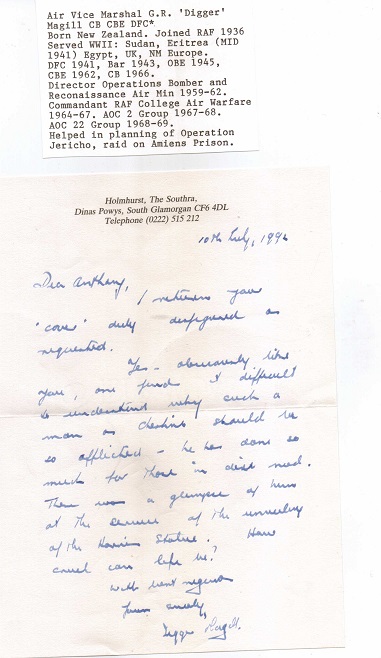 Air Vice Marshal G.R. 'Digger'
Magill CB CBE DFC*
Born New Zealand. Joined RAF 1936
Served WWII: Sudan, Eritrea (MID
1941) Egypt, UK, NM Europe.
DFC 1941, Bar 1943, OBE 1945,
CBE 1962, CB 1966.
Director Operations Bomber and
Reconaissance Air Min 1959-62.
Commandant RAF College Air Warfare
1964-67. AOC 2 Group 1967-68.
AOC 22 Group 1968-69.
Helped in planning of Operation
Jericho, raid on Amiens Prison.
Holmhurst, The Southra,
Dinas Powys, South Glamorgan CF6 4DL
Telephone (0222) 515 212
10th July, 1992
Dear Anthony,
I return your
'cover' duly defigured as
requested.
Yes - obviously like
you, one finds it difficult
to understand why such a
man as Cheshire should be
so afflicted - he has done so
much for those in dire need.
There was a glimpse of him
at the service of the unveiling
of the Harris Statue. How
cruel can life be?
With best regards
Yours sincerely,
Digger Magill.